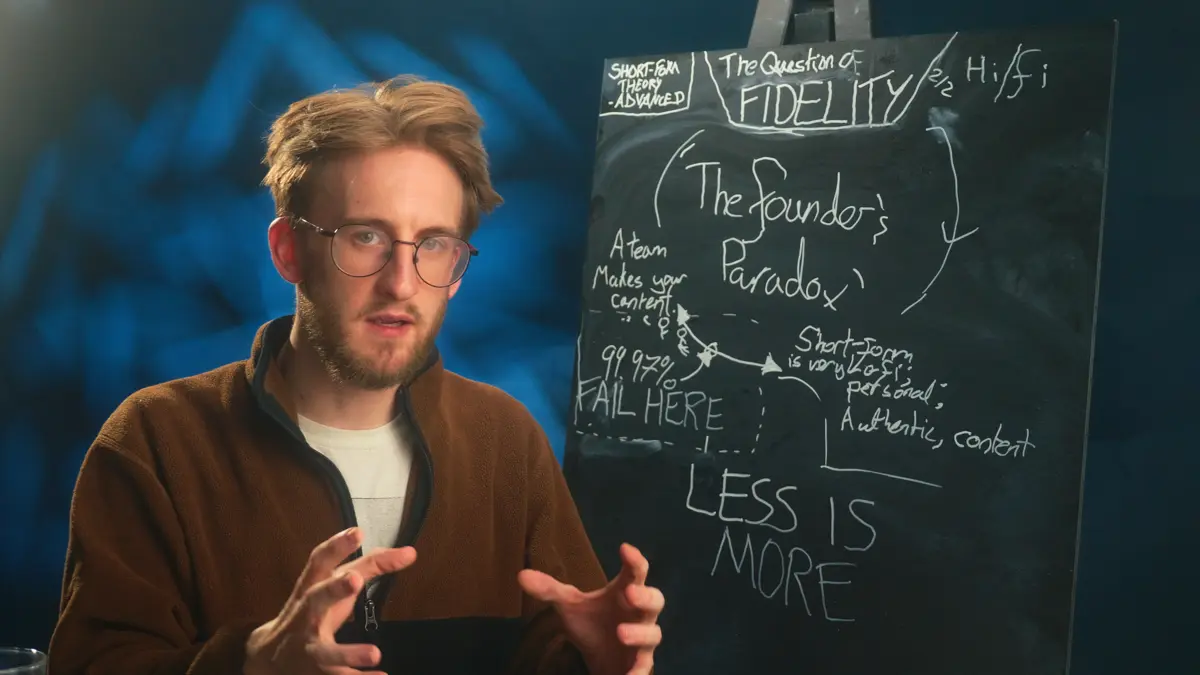 SHORT-FORM
THEORY
-ADVANCED
The Question of
FIDELITY
Hi/fi
The founder's
Paradox
A team
Makes your
content.
99.97%
FAIL HERE
Short-form
is very Lo fi;
personal;
Authentic, content
LESS IS
MORE